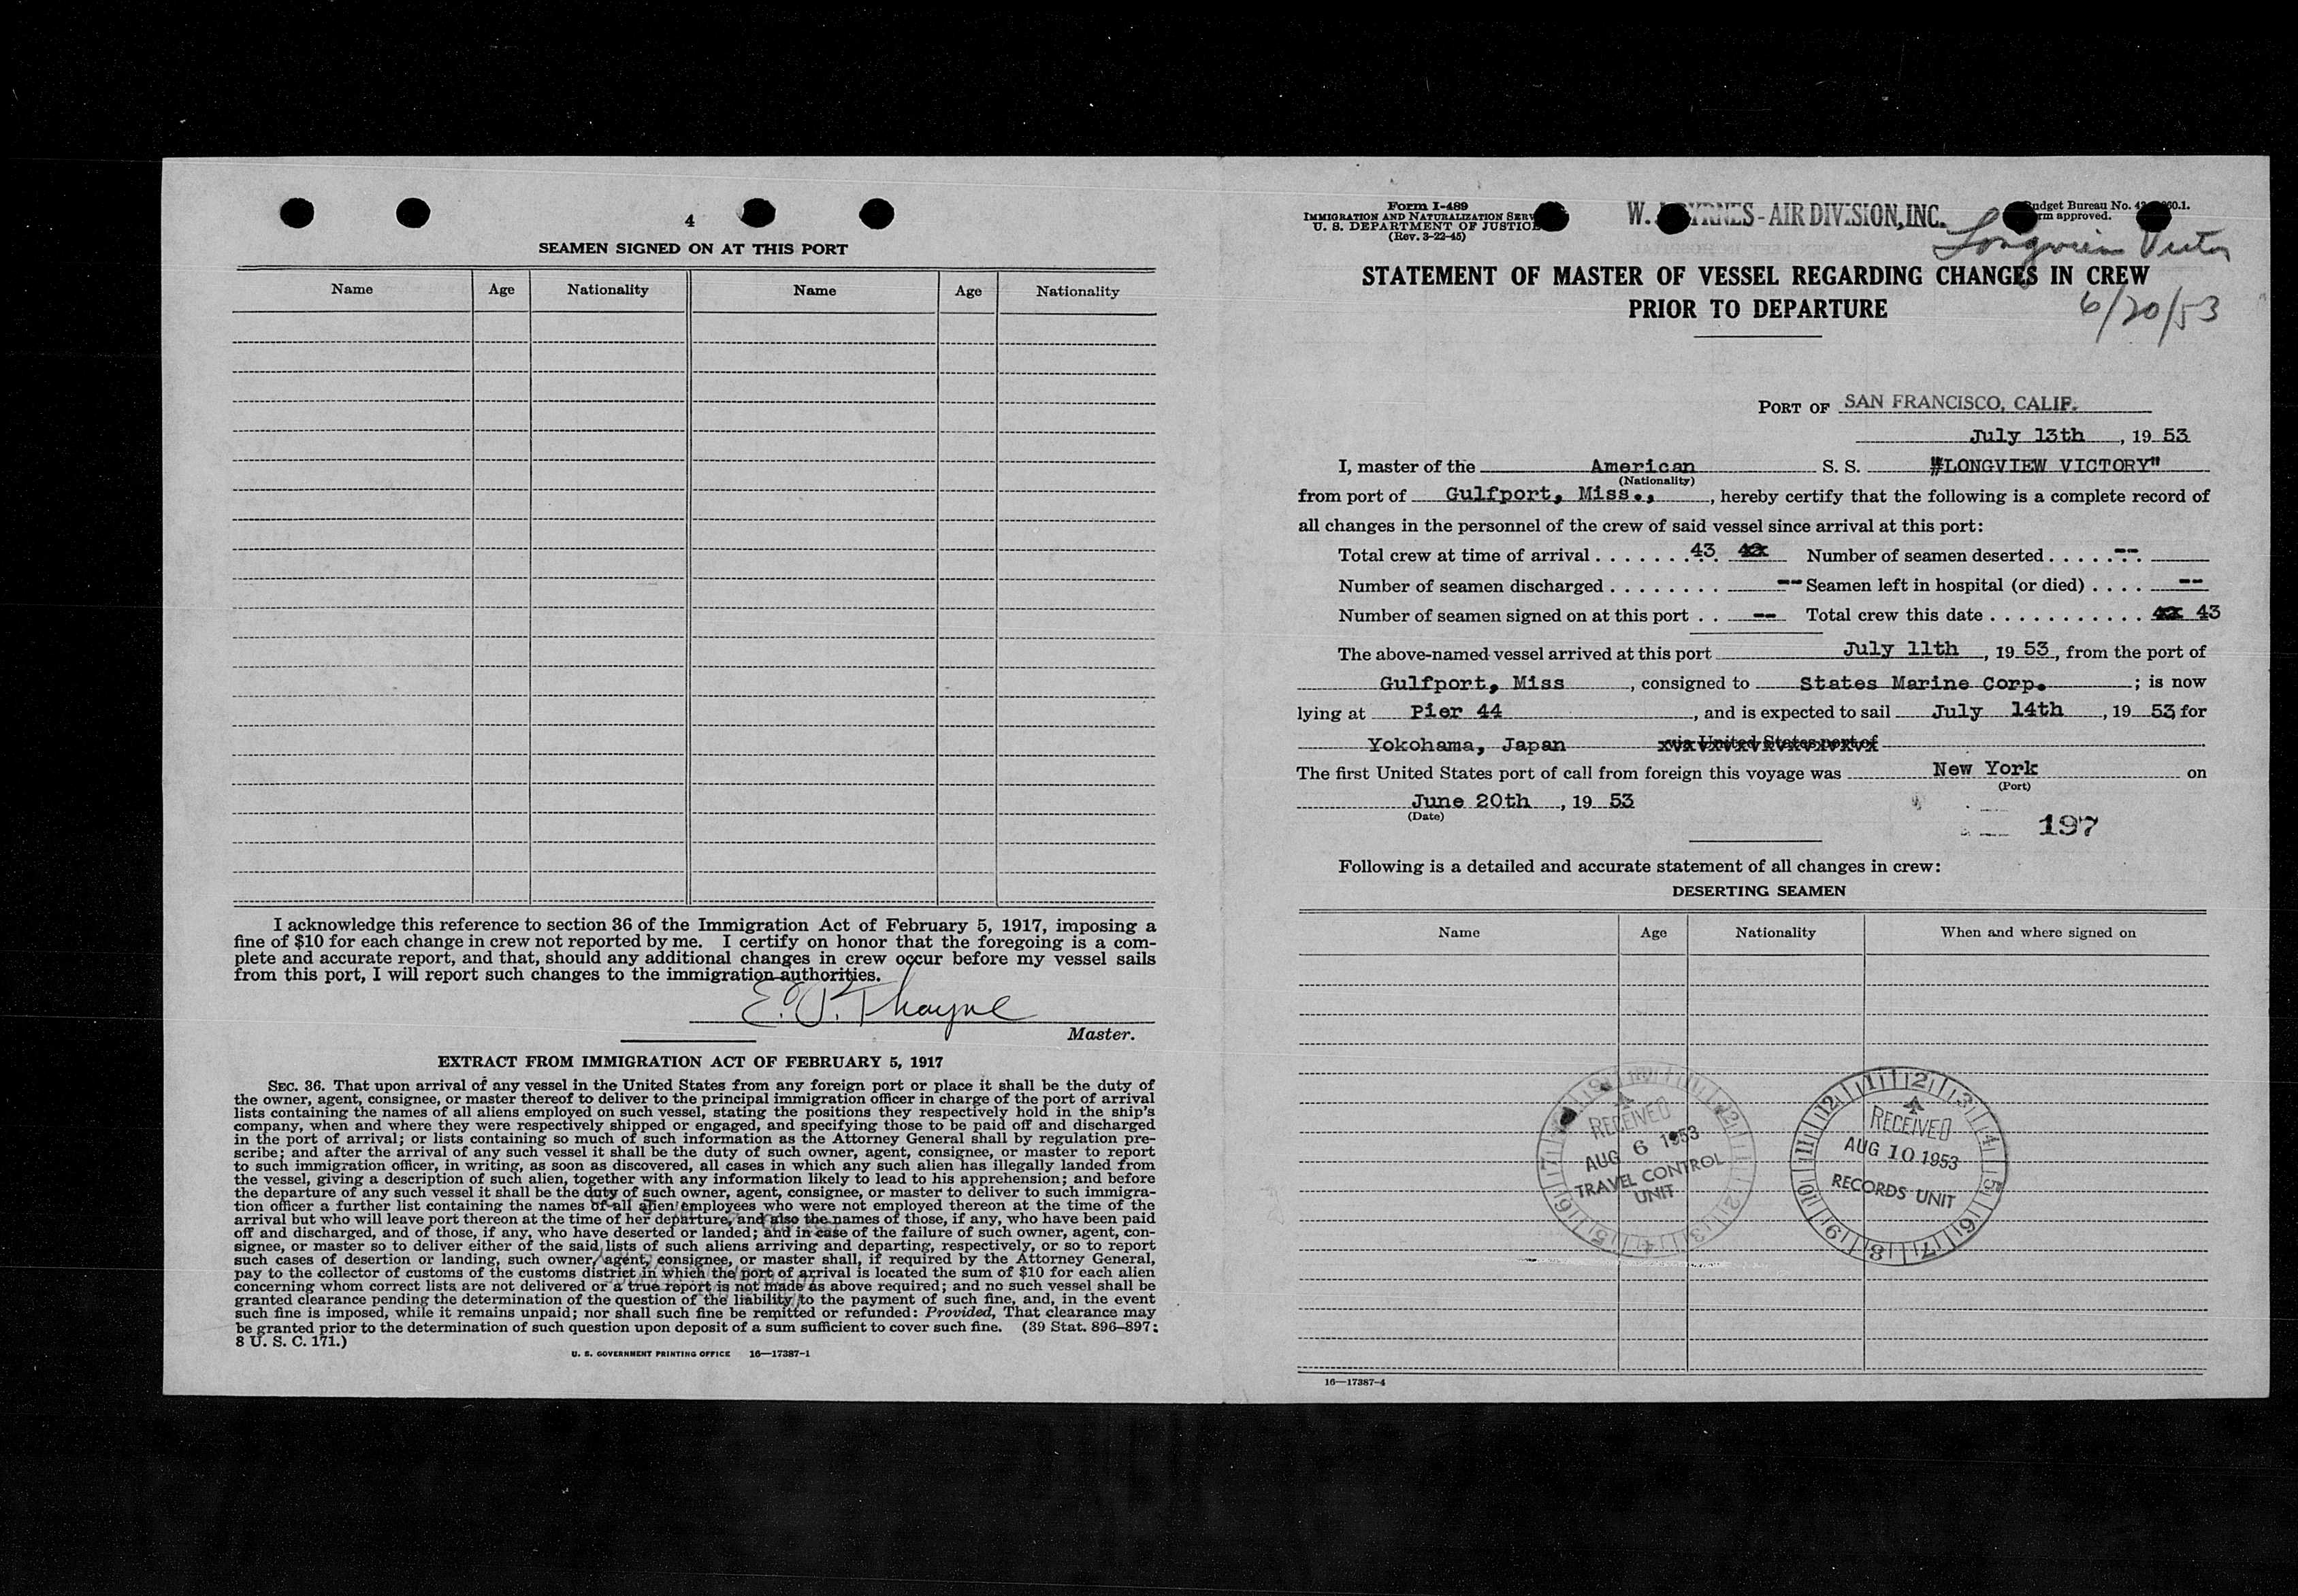 4
SEAMEN SIGNED ON AT THIS PORT
Name Age Nationality Name Age Nationality
I acknowledge this reference to section 36 of the Immigration Act of February 5, 1917, imposing a
fine of $10 for each change in crew not reported by me. I certify on honor that the foregoing is a com-
plete and accurate report, and that, should any additional changes in crew occur before my vessel sails
from this port, I will report such changes to the immigration authorities.
E. P. Thayne
Master.
EXTRACT FROM IMMIGRATION ACT OF FEBRUARY 5, 1917
SEC. 36. That upon arrival of any vessel in the United States from any foreign port or place it shall be the duty of
the owner, agent, consignee, or master thereof to deliver to the principal immigration officer in charge of the port of arrival
lists containing the names of all aliens employed on such vessel, stating the positions they respectively hold in the ship's
company, when and where they were respectively shipped or engaged, and specifying those to be paid off and discharged
in the port of arrival; or lists containing so much of such information as the Attorney General shall by regulation pre-
scribe; and after the arrival of any such vessel it shall be the duty of such owner, agent, consignee, or master to report
to such immigration officer, in writing, as soon as discovered, all cases in which any such alien has illegally landed from
the vessel, giving a description of such alien, together with any information likely to lead to his apprehension; and before
the departure of any such vessel it shall be the duty of such owner, agent, consignee, or master to deliver to such immigra-
tion officer a further list containing the names of all alien employees who were not employed thereon at the time of the
arrival but who will leave port thereon at the time of her departure, and also the names of those, if any, who have been paid
off and discharged, and of those, if any, who have deserted or landed; and in case of the failure of such owner, agent, con-
signee, or master so to deliver either of the said lists of such aliens arriving and departing, respectively, or so to report
such cases of desertion or landing, such owner, agent, consignee, or master shall, if required by the Attorney General,
pay to the collector of customs of the customs district in which the port of arrival is located the sum of $10 for each alien
concerning whom correct lists are not delivered or a true report is not made as above required; and no such vessel shall be
granted clearance pending the determination of the question of the liability to the payment of such fine, and, in the event
such fine is imposed, while it remains unpaid; nor shall such fine be remitted or refunded: Provided, That clearance may
be granted prior to the determination of such question upon deposit of a sum sufficient to cover such fine. (39 Stat. 896–897;
8 U. S. C. 171.)
U. S. GOVERNMENT PRINTING OFFICE 16—17387-1
Form I-489
IMMIGRATION AND NATURALIZATION
U. S. DEPARTMENT OF JUSTICE
(Rev. 3-22-45)
W. - AIR DIVISION, INC.
Budget Bureau No.
approved.
Longview Victory
6/20/53
STATEMENT OF MASTER OF VESSEL REGARDING CHANGES IN CREW
PRIOR TO DEPARTURE
PORT OF SAN FRANCISCO, CALIF.
July 13th, 19 53
I, master of the American S. S. "LONGVIEW VICTORY"
(Nationality)
from port of Gulfport, Miss., , hereby certify that the following is a complete record of
all changes in the personnel of the crew of said vessel since arrival at this port:
Total crew at time of arrival . . . . . . . 43 Number of seamen deserted . . . . . --
Number of seamen discharged . . . . . . . . -- Seamen left in hospital (or died) . . . . --
Number of seamen signed on at this port . . -- Total crew this date . . . . . . . . . . . 43
The above-named vessel arrived at this port July 11th, 19 53, from the port of
Gulfport, Miss, consigned to States Marine Corp. ; is now
lying at Pier 44, and is expected to sail July 14th, 19 53 for
Yokohama, Japan via United States port of
The first United States port of call from foreign this voyage was New York on
(Port)
June 20th, 19 53
(Date)
197
Following is a detailed and accurate statement of all changes in crew:
DESERTING SEAMEN
Name Age Nationality When and where signed on
RECEIVED
AUG 6 1953
TRAVEL CONTROL
UNIT
RECEIVED
AUG 10 1953
RECORDS UNIT
16—17387-4